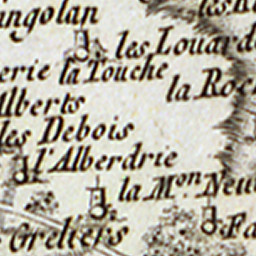 ngolan
les Louard
erie la Touche
la Roc
Alberts
les Debois
l'Alberdrie
la Mon Neu
Greliers
Fa